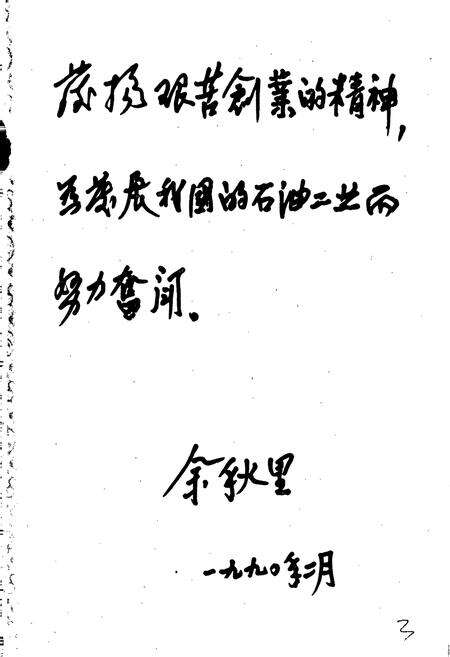 发扬艰苦創業的精神，
为发展我國的石油工业而
努力奮闘。
余秋里
一九九〇年二月
3